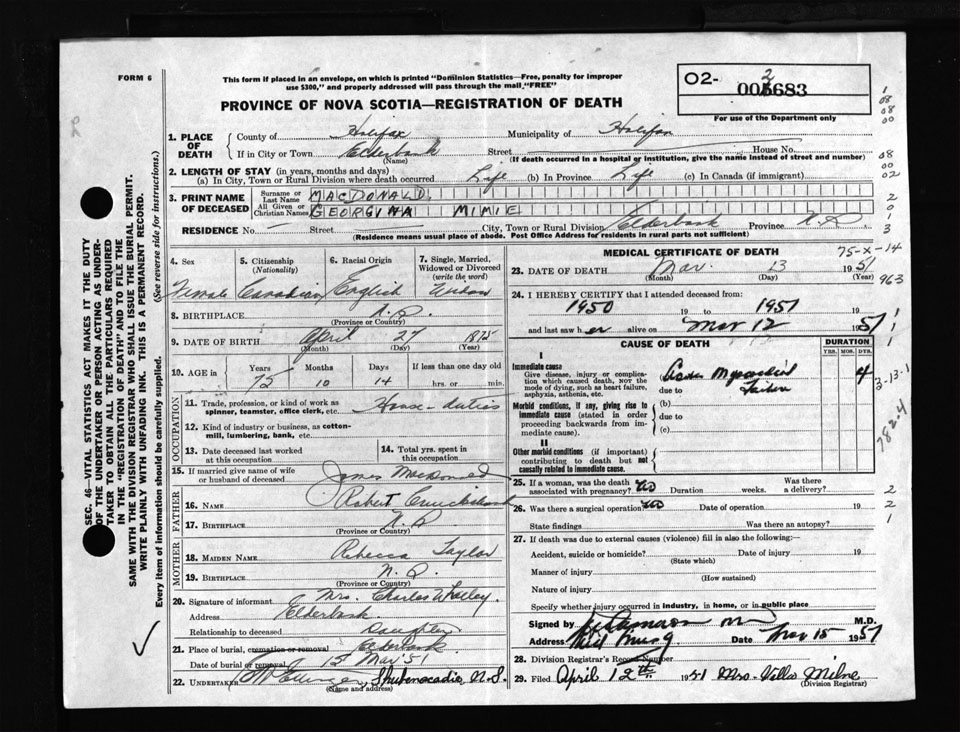 FORM 6
This form if placed in an envelope, on which is printed "Dominion Statistics—Free, penalty for improper
use $300," and properly addressed will pass through the mail "FREE"
PROVINCE OF NOVA SCOTIA—REGISTRATION OF DEATH
02- 002683
For use of the Department only
1. PLACE OF DEATH
County of Halifax Municipality of Halifax
If in City or Town Elderbank Street House No.
(Name) (If death occurred in a hospital or institution, give the name instead of street and number)
2. LENGTH OF STAY (in years, months and days)
(a) In City, Town or Rural Division where death occurred Life (b) In Province Life (c) In Canada (if immigrant)
3. PRINT NAME OF DECEASED
Surname or Last Name MACDONALD.
All Given or Christian Names GEORGINA MIMIE
RESIDENCE No. — Street City, Town or Rural Division Elderbank Province N.S.
(Residence means usual place of abode. Post Office Address for residents in rural parts not sufficient)
4. Sex Female
5. Citizenship (Nationality) Canadian
6. Racial Origin English
7. Single, Married, Widowed or Divorced (write the word) Widow
8. BIRTHPLACE N.S.
(Province or Country)
9. DATE OF BIRTH April 27 1875
(Month) (Day) (Year)
10. AGE in Years 75 Months 10 Days 14 If less than one day old hrs. or min.
OCCUPATION
11. Trade, profession, or kind of work as spinner, teamster, office clerk, etc. House-duties
12. Kind of industry or business, as cotton-mill, lumbering, bank, etc.
13. Date deceased last worked at this occupation
14. Total yrs. spent in this occupation
15. If married give name of wife or husband of deceased James MacDonald
FATHER
16. Name Robert Cruickshank
17. BIRTHPLACE N.S.
(Province or Country)
MOTHER
18. MAIDEN NAME Rebecca Taylor
19. BIRTHPLACE N.S.
(Province or Country)
20. Signature of informant Mrs. Charles
Address Elderbank
Relationship to deceased Daughter
21. Place of burial, cremation or removal Elderbank
Date of burial or removal 15 Mar '51
22. UNDERTAKER Shubenacadie, N.S.
(Name and address)
MEDICAL CERTIFICATE OF DEATH
75-X-14
23. DATE OF DEATH Mar. 13 1951
(Month) (Day) (Year)
963
24. I HEREBY CERTIFY that I attended deceased from:
1950 19 to 1951 19
and last saw her alive on Mar 12 1951
CAUSE OF DEATH
DURATION
YRS. MOS. DYS.
I
Immediate cause
Give disease, injury or complication which caused death, NOT the mode of dying, such as heart failure, asphyxia, asthenia, etc.
(a) Acute Myocardial Failure 4
due to
Morbid conditions, if any, giving rise to immediate cause (stated in order proceeding backwards from immediate cause).
(b)
due to
(c)
II
Other morbid conditions (if important) contributing to death but not causally related to immediate cause.
3-13-1
782-4
25. If a woman, was the death associated with pregnancy? No Duration weeks. Was there a delivery?
26. Was there a surgical operation No Date of operation 19
State findings Was there an autopsy?
27. If death was due to external causes (violence) fill in also the following:—
Accident, suicide or homicide? Date of injury 19
(State which)
Manner of injury
(How sustained)
Nature of injury
Specify whether injury occurred in industry, in home, or in public place
Signed by M.D.
Address Date Mar 15 1951
28. Division Registrar's Record Number
29. Filed April 12th 1951 Mrs. Villa Milne
(Division Registrar)
SEC. 46—VITAL STATISTICS ACT MAKES IT THE DUTY
OF THE UNDERTAKER OR PERSON ACTING AS UNDER-
TAKER TO OBTAIN ALL THE PARTICULARS REQUIRED
IN THE "REGISTRATION OF DEATH" AND TO FILE THE
SAME WITH THE DIVISION REGISTRAR WHO SHALL ISSUE THE BURIAL PERMIT.
WRITE PLAINLY WITH UNFADING INK. THIS IS A PERMANENT RECORD.
Every item of information should be carefully supplied. (See reverse side for instructions.)